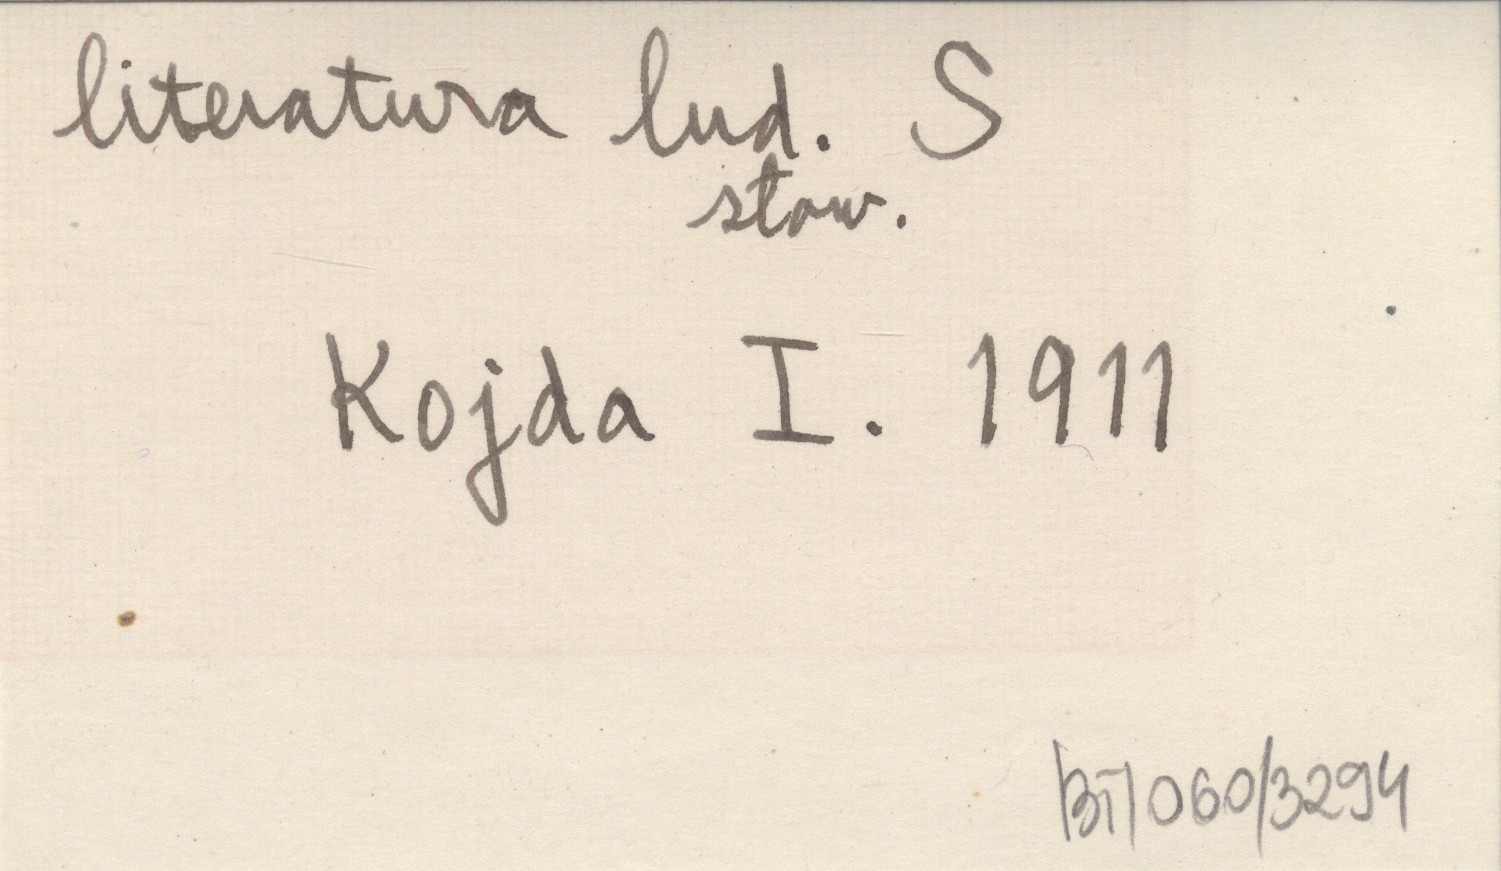 literatura lud. S
stow.
Kojda I. 1911
BT/060/3294